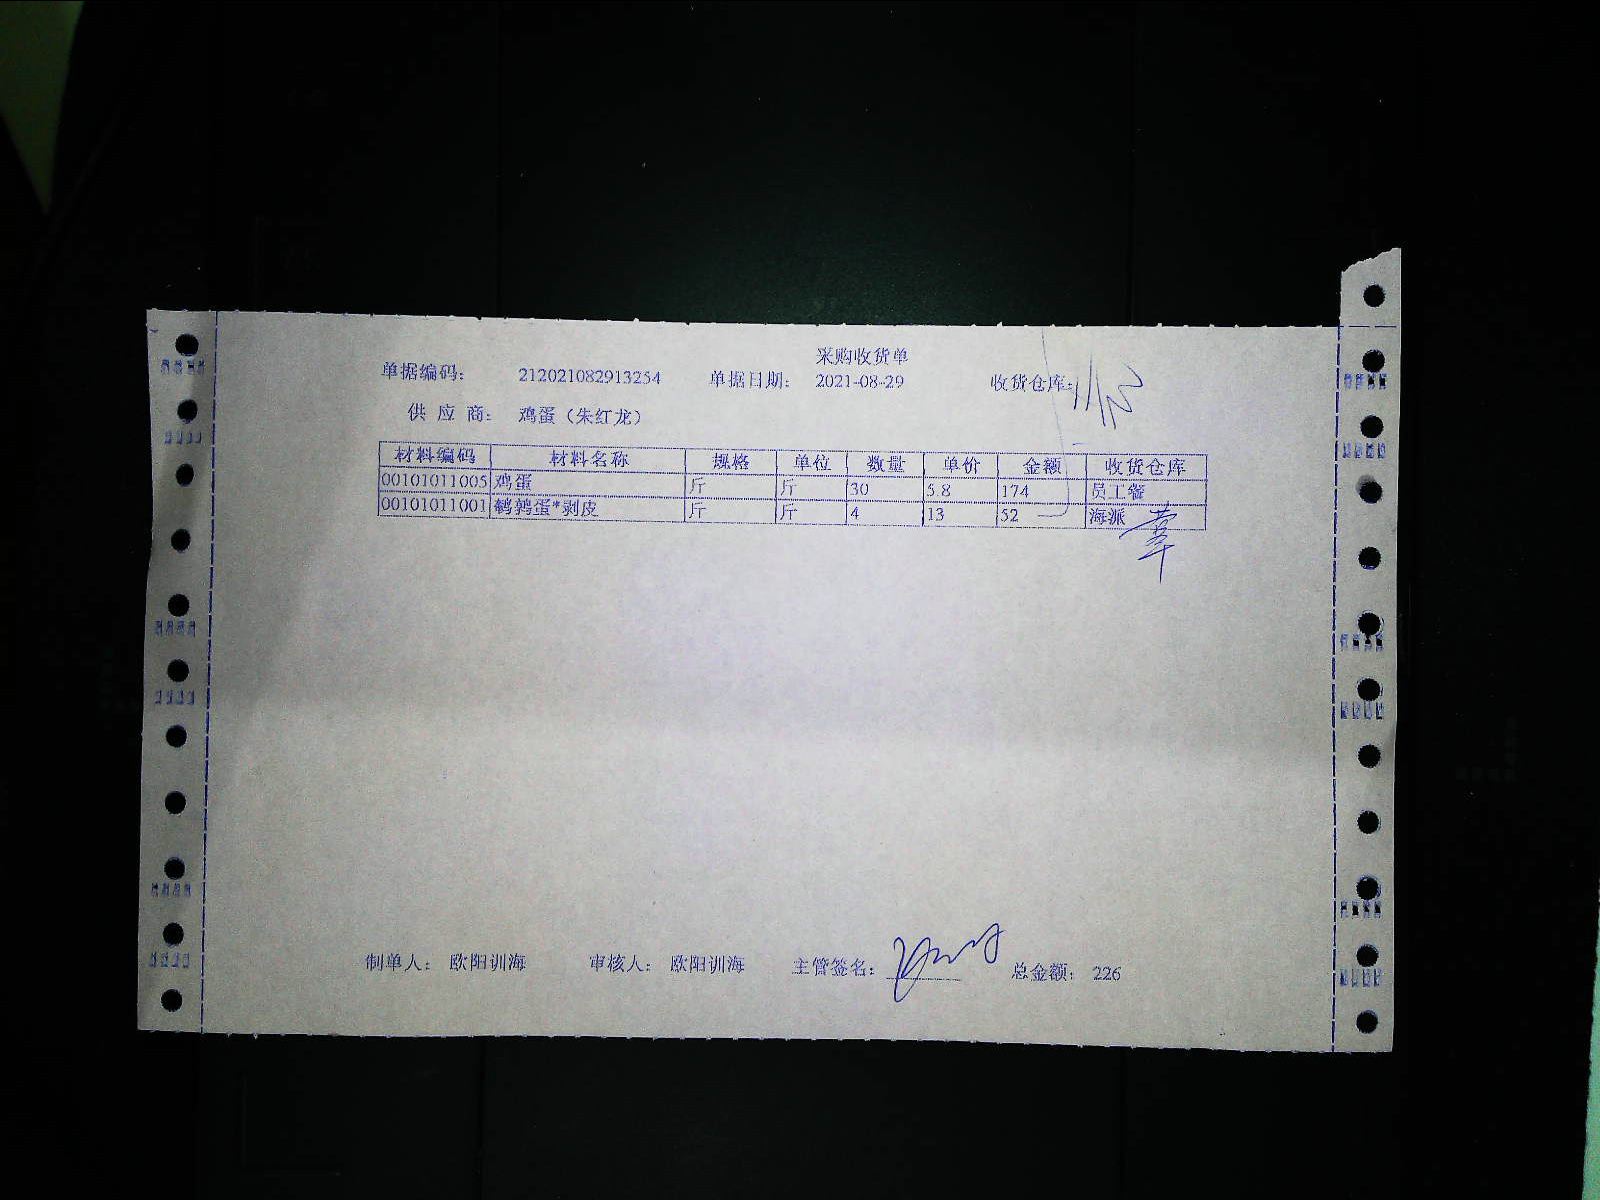 采购收货单
单据编码: 212021082913254 单据日期: 2021-08-29 收货仓库:
供应商: 鸡蛋(朱红龙)
材料编码 材料名称 规格 单位 数量 单价 金额 收货仓库
00101011005 鸡蛋 斤 斤 30 5.8 174 员工餐
00101011001 鹌鹑蛋*剥皮 斤 斤 4 13 52 海派
制单人: 欧阳训海 审核人: 欧阳训海 主管签名: 总金额: 226